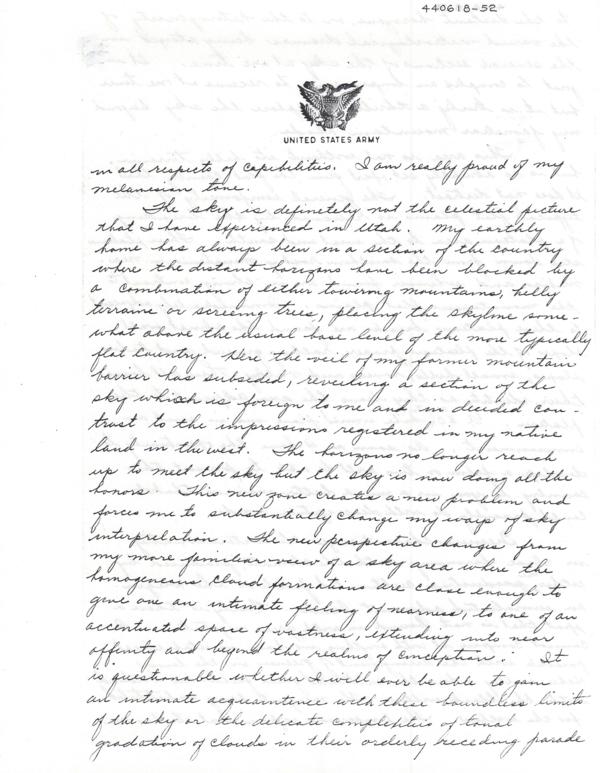 440618-52
UNITED STATES ARMY
in all respects of capibilities. I am really proud of my
melanesian tone.
The sky is definetely not the celestial picture
that I have experienced in Utah. My earthly
home has always been in a section of the country
where the distant horizons have been blocked by
a combination of either towering mountains, hilly
terraine or screeing trees, placing the skyline some-
what above the usual base level of the more typically
flat country. Here the veil of my former mountain
barrier has subsided, revealing a section of the
sky which is foreign to me and in decided con-
trast to the impressions registered in my native
land in the west. The horizons no longer reach
up to meet the sky but the sky is now doing all the
honors. This new zone creates a new problem and
forces me to substantially change my ways of sky
interpretation. The new perspective changes from
my more familiar view of a sky area where the
homogeneous cloud formations are close enough to
give one an intimate feeling of nearness, to one of an
accentuated space of vastness, extending into near
affinity and beyond the realms of conception. It
is questionable whether I will ever be able to gain
an intimate acquaintence with these boundless limits
of the sky or the delicate complexities of tonal
gradation of clouds in their orderly receding parade